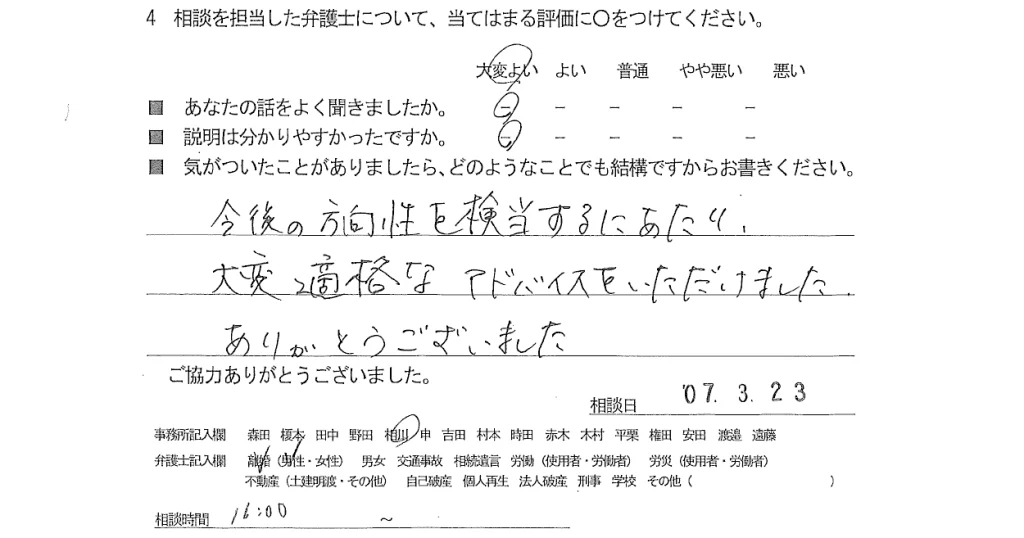 4 相談を担当した弁護士について、当てはまる評価に○をつけてください。
大変よい よい 普通 やや悪い 悪い
■ あなたの話をよく聞きましたか。 － － － － －
■ 説明は分かりやすかったですか。 － － － － －
■ 気がついたことがありましたら、どのようなことでも結構ですからお書きください。
今後の方向性を検当するにあたり、
大変適格なアドバイスをいただけました.
ありがとうございました
ご協力ありがとうございました。
相談日 '07. 3. 23
事務所記入欄 森田 榎本 田中 野田 相川 申 吉田 村本 時田 赤木 木村 平栗 権田 安田 渡邉 遠藤
弁護士記入欄 離婚（男性・女性） 男女 交通事故 相続遺言 労働（使用者・労働者） 労災（使用者・労働者）
不動産（土建明渡・その他） 自己破産 個人再生 法人破産 刑事 学校 その他（ ）
相談時間 16:00 ～